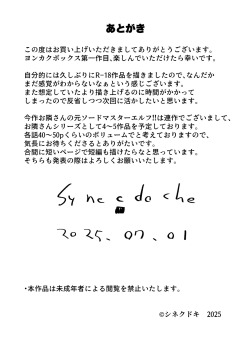 あとがき
この度はお買い上げいただきましてありがとうございます。
ヨンカクボックス第一作目、楽しんでいただけたら幸いです。
自分的には久しぶりにR-18作品を描きましたので、なんだか
まだ感覚がわからないなぁという感じございます。
また想定していたより描き上げるのに時間がかかって
しまったので反省しつつ次回に活かしたいと思います。
今作お隣さんの元ソードマスターエルフ!!は連作でございまして、
お隣さんシリーズとして4～5作品を予定しております。
各話40～50pくらいのボリュームでと考えておりますので、
気長にお待ちくださるとありがたいです。
合間に短いページで短編も描けたらなと思っています。
そちらも発表の際はよろしくお願いいたします。
Synecdoche
2025.07.01
・本作品は未成年者による閲覧を禁止いたします。
©シネクドキ 2025